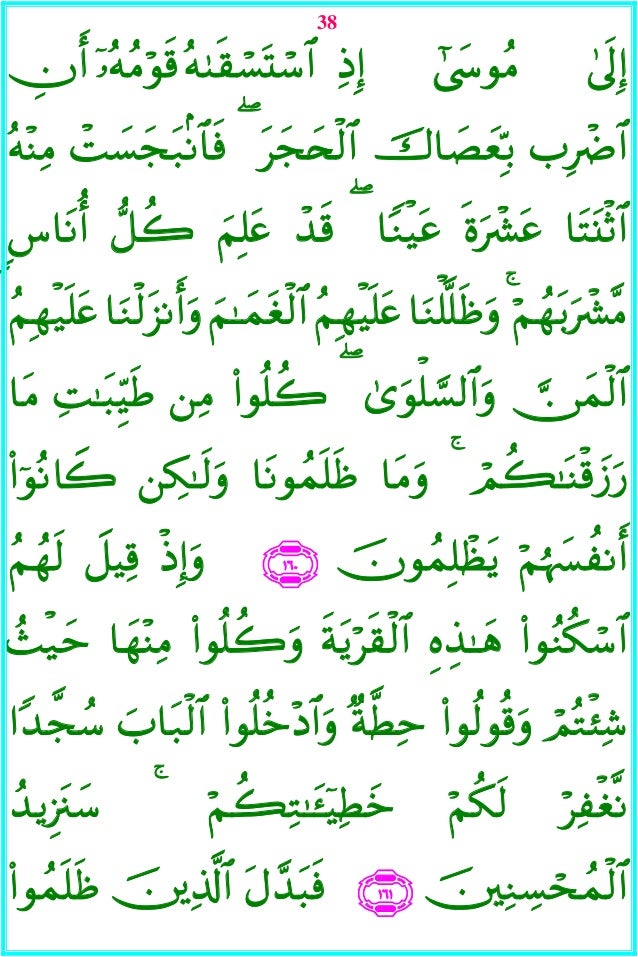 38
إِلَىٰ مُوسَىٰٓ إِذِ ٱسْتَسْقَىٰهُ قَوْمُهُۥٓ أَنِ
ٱضْرِب بِّعَصَاكَ ٱلْحَجَرَ ۖ فَٱنۢبَجَسَتْ مِنْهُ
ٱثْنَتَا عَشْرَةَ عَيْنًا ۖ قَدْ عَلِمَ كُلُّ أُنَاسٍ
مَّشْرَبَهُمْ ۚ وَظَلَّلْنَا عَلَيْهِمُ ٱلْغَمَـٰمَ وَأَنزَلْنَا عَلَيْهِمُ
ٱلْمَنَّ وَٱلسَّلْوَىٰ ۖ كُلُوا۟ مِن طَيِّبَـٰتِ مَا
رَزَقْنَـٰكُمْ ۚ وَمَا ظَلَمُونَا وَلَـٰكِن كَانُوٓا۟
أَنفُسَهُمْ يَظْلِمُونَ ١٦٠ وَإِذْ قِيلَ لَهُمُ
ٱسْكُنُوا۟ هَـٰذِهِ ٱلْقَرْيَةَ وَكُلُوا۟ مِنْهَا حَيْثُ
شِئْتُمْ وَقُولُوا۟ حِطَّةٌ وَٱدْخُلُوا۟ ٱلْبَابَ سُجَّدًا
نَّغْفِرْ لَكُمْ خَطِيٓـَٔـٰتِكُمْ ۚ سَنَزِيدُ
ٱلْمُحْسِنِينَ ١٦١ فَبَدَّلَ ٱلَّذِينَ ظَلَمُوا۟